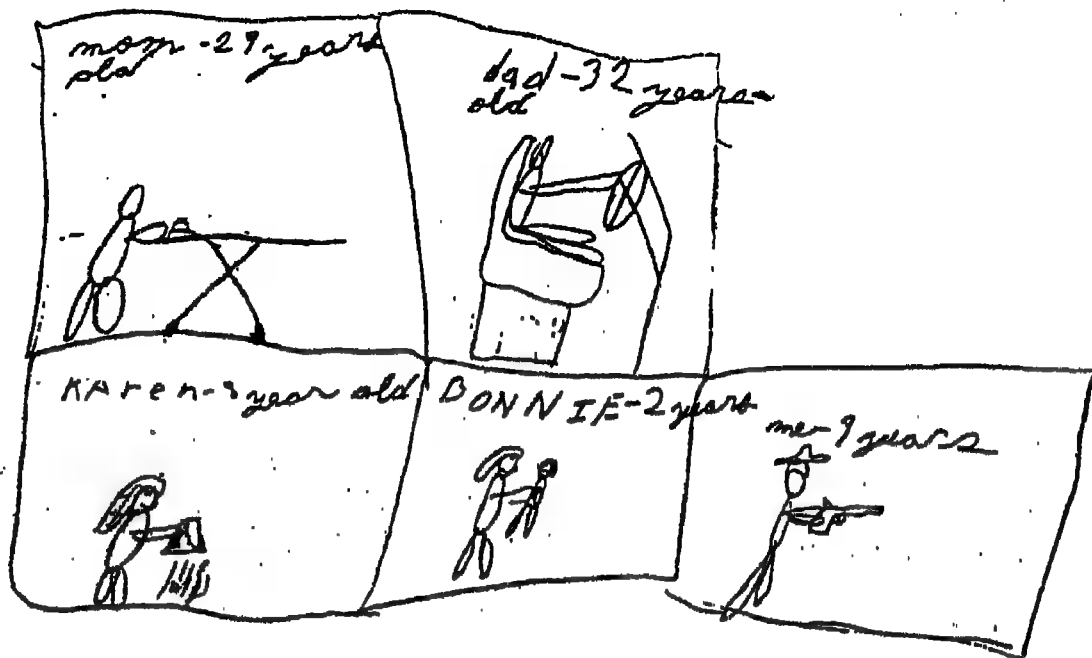 mom - 29 years
old
dad - 32 years
old
KAren - year old
BONNIE - 2 years
me - 9 years